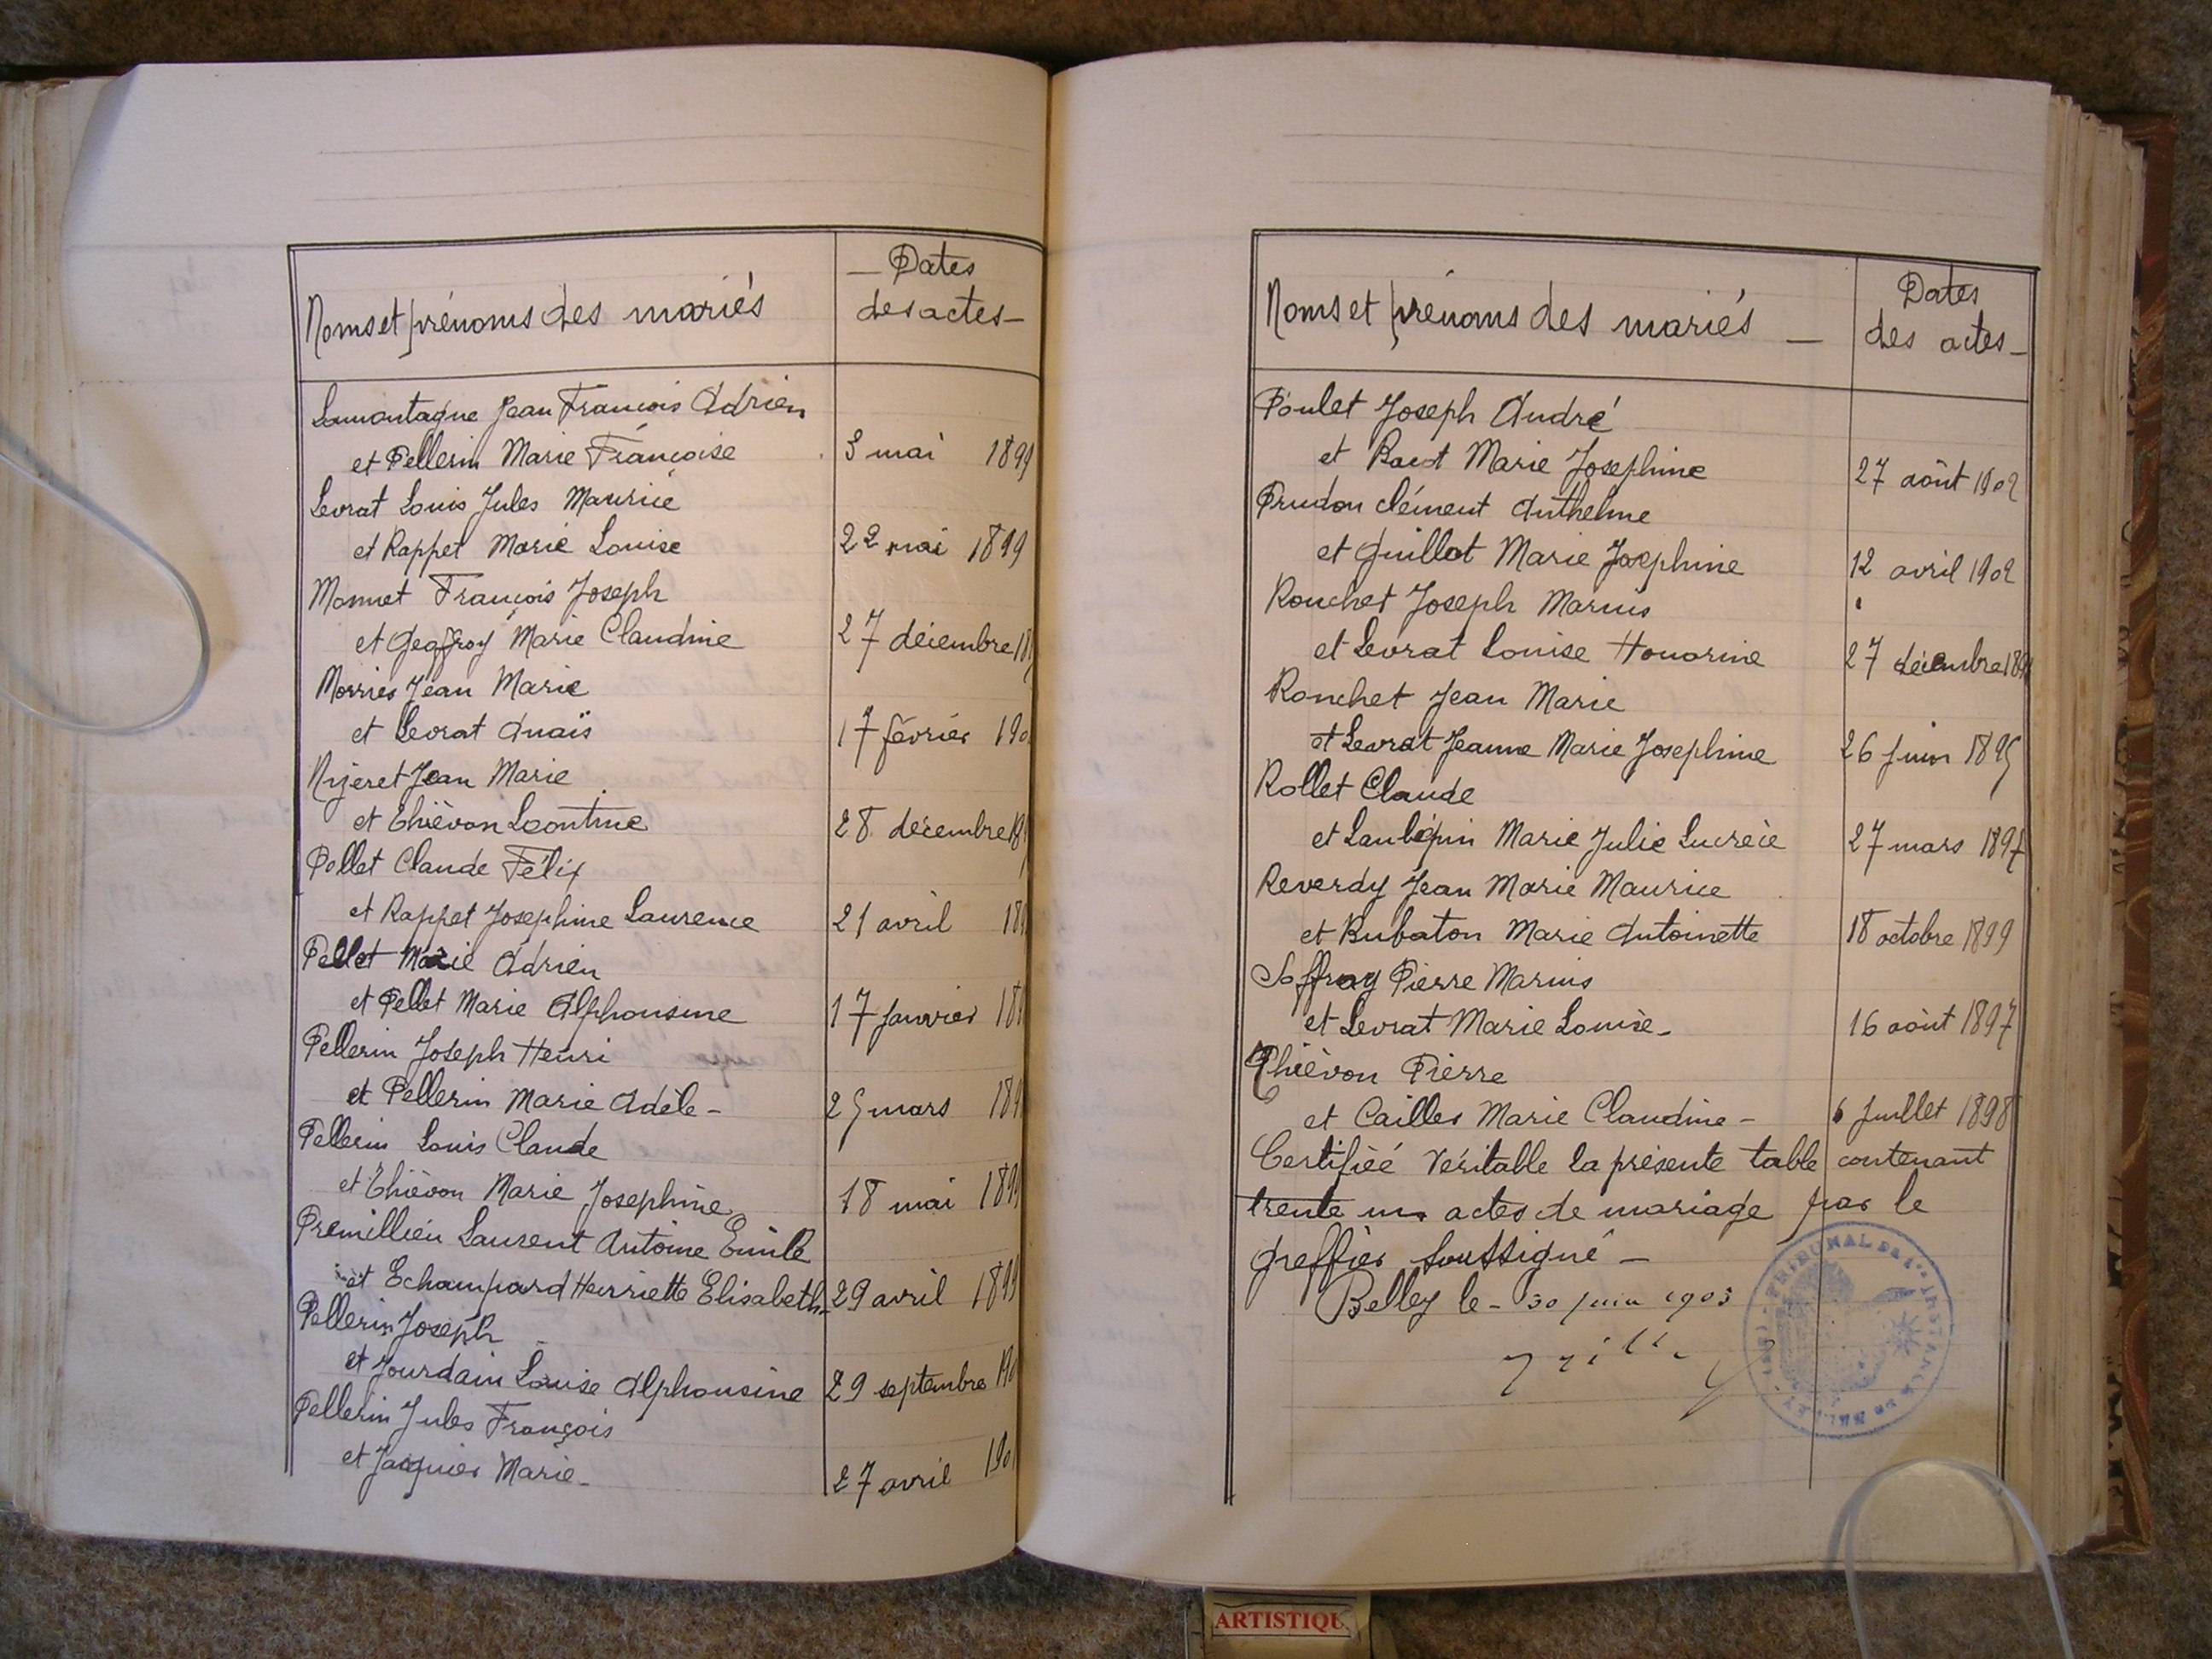 Noms et prénoms des mariés
— Dates
des actes —
Lamontagne Jean François Adrien
et Pellerin Marie Françoise 3 mai 1899
Levrat Louis Jules Maurice
et Rappet Marie Louise 22 mai 1899
Monnet François Joseph
et Geoffroy Marie Claudine 27 décembre 18
Morrier Jean Marie
et Levrat Anaïs 17 février 190
Jean Marie
et Thiévon Léontine 28 décembre
Pellet Claude Félix
et Rappet Josephine Laurence 21 avril 18
Pellet Marie Adrien
et Pellet Marie Alphonsine 17 janvier 18
Pellerin Joseph Henri
et Pellerin Marie Adèle - 25 mars 18
Pellerin Louis Claude
et Thiévon Marie Josephine 18 mai 189
Premillieu Laurent Antoine Emile
et Echampard Henriette Elisabeth 29 avril 1899
Pellerin Joseph
et Jourdain Louise Alphonsine 29 septembre
Pellerin Jules François
et Jacquier Marie - 27 avril 190
Noms et prénoms des mariés —
Dates
des actes —
Poulet Joseph André
et Marie Josephine 27 août 1902
Prudon Clément Anthelme
et Guillot Marie Josephine 12 avril 1902
Ronchet Joseph Marius
et Levrat Louise Honorine 27 décembre 189
Ronchet Jean Marie
et Levrat Jeanne Marie Josephine 26 Juin 1895
Rollet Claude
et Laulépin Marie Julie Lucrèce 27 mars 1897
Reverdy Jean Marie Maurice
et Rubaton Marie Antoinette 18 octobre 1899
Soffray Pierre Marius
et Levrat Marie Louise - 16 août 1897
Thiévon Pierre
et Cailler Marie Claudine - 6 Juillet 1898
Certifiée véritable la présente table contenant
trente un actes de mariage par le
greffier soussigné —
Belley le - 30 juin 1903
TRIBUNAL DE 1ère INSTANCE DE BELLEY
ARTISTIQU